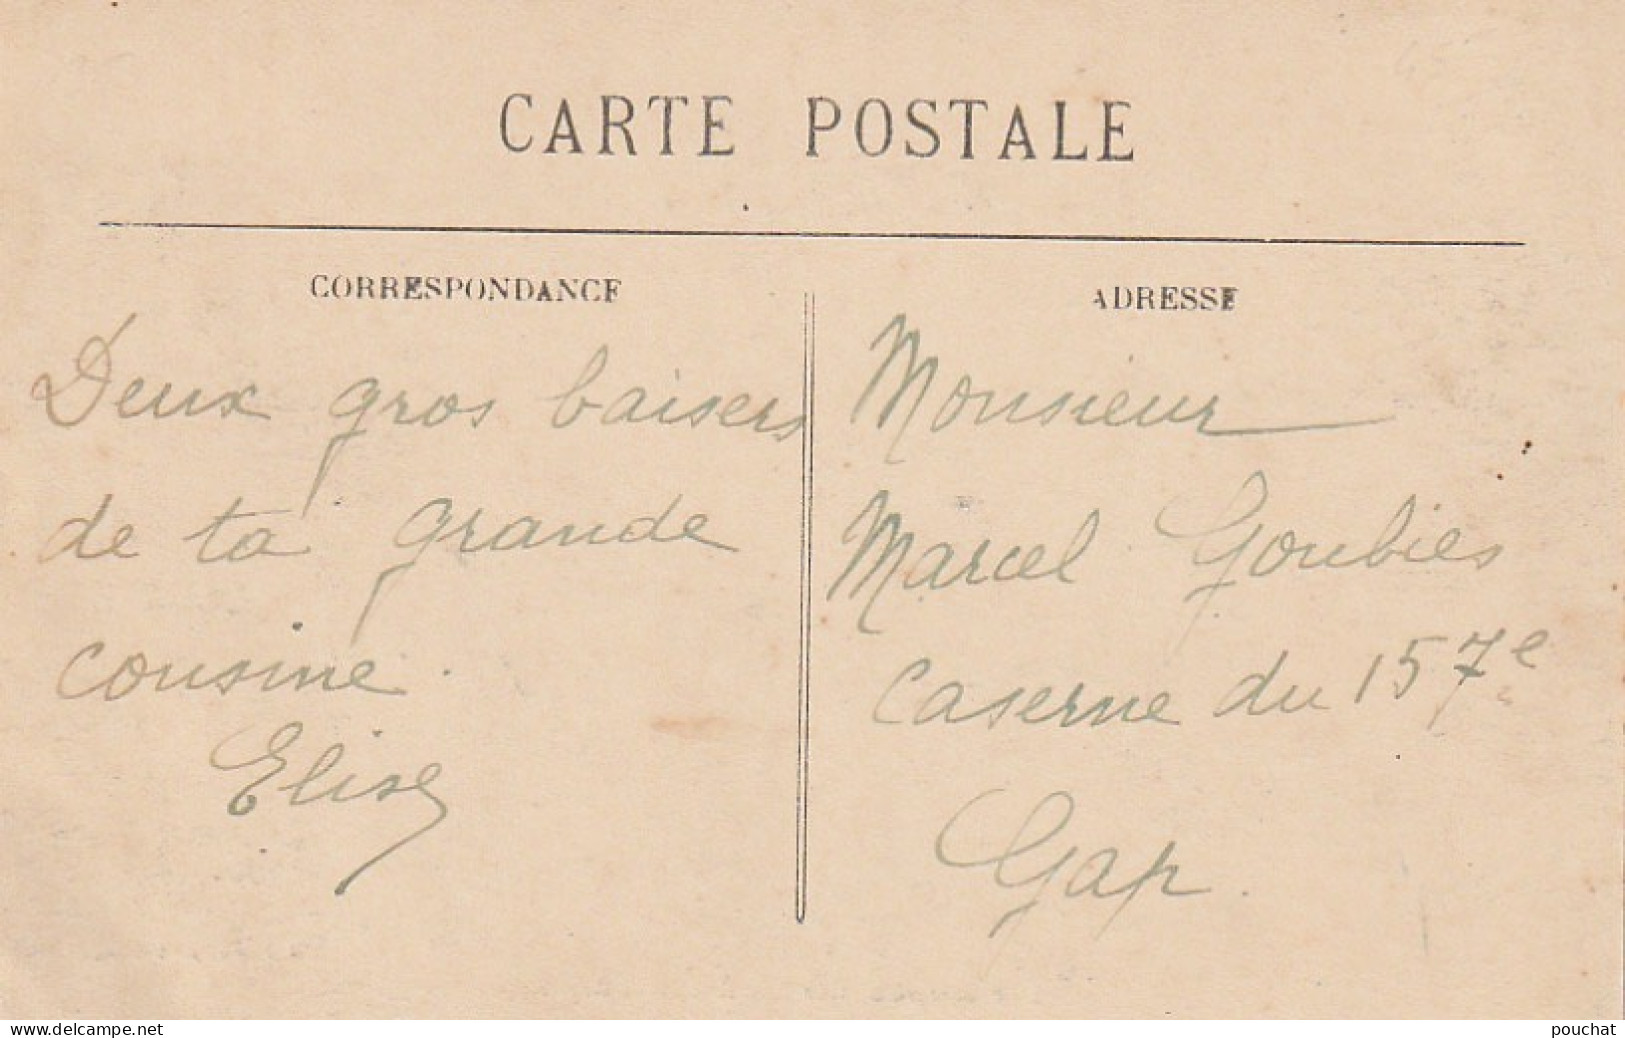 CARTE POSTALE
CORRESPONDANCE
Deux gros baisers
de ta grande
cousine.
Elise
ADRESSE
Monsieur
Marcel Goubies
Caserne du 157e
Gap.
www.delcampe.net
pouchat